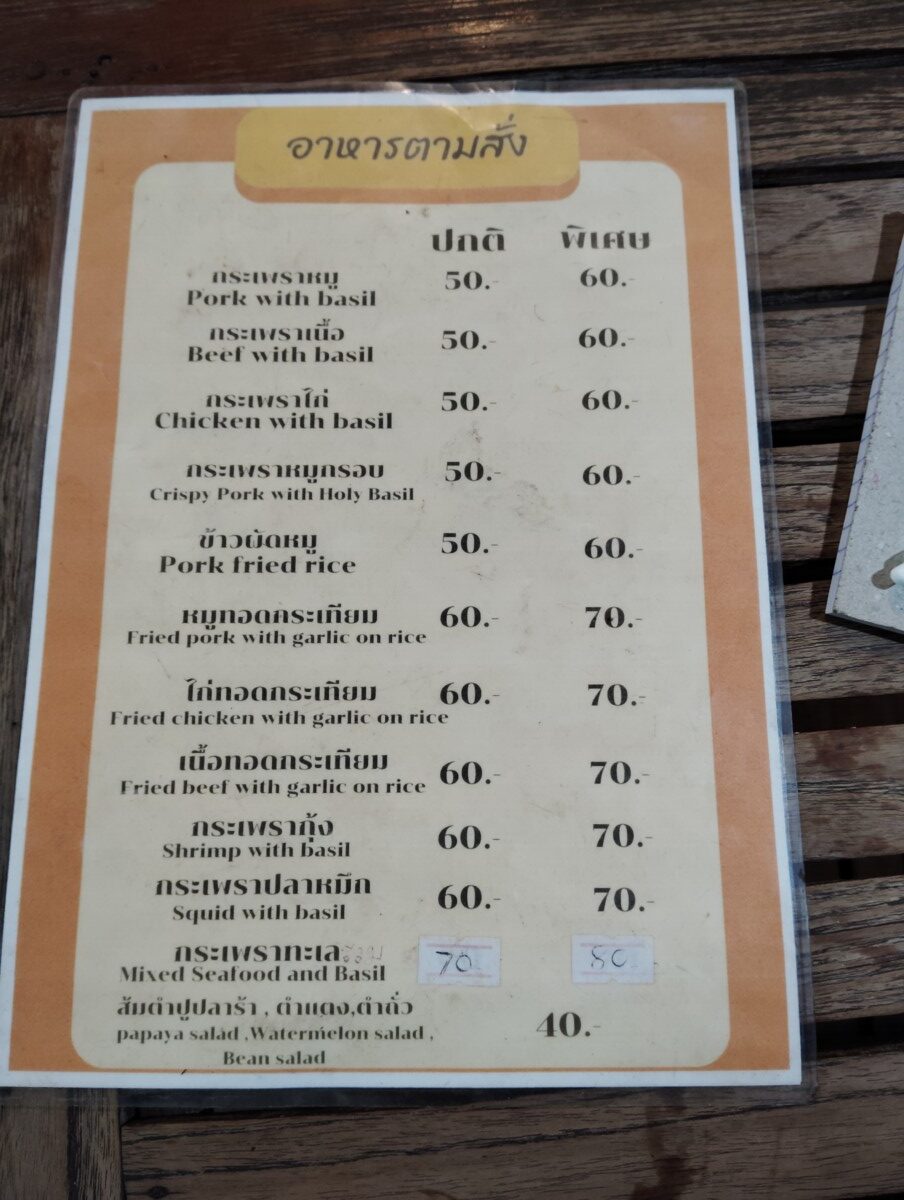 อาหารตามสั่ง
ปกติ พิเศษ
กระเพราหมู 50.- 60.-
Pork with basil
กระเพราเนื้อ 50.- 60.-
Beef with basil
กระเพราไก่ 50.- 60.-
Chicken with basil
กระเพราหมูกรอบ 50.- 60.-
Crispy Pork with Holy Basil
ข้าวผัดหมู 50.- 60.-
Pork fried rice
หมูทอดกระเทียม 60.- 70.-
Fried pork with garlic on rice
ไก่ทอดกระเทียม 60.- 70.-
Fried chicken with garlic on rice
เนื้อทอดกระเทียม 60.- 70.-
Fried beef with garlic on rice
กระเพรากุ้ง 60.- 70.-
Shrimp with basil
กระเพราปลาหมึก 60.- 70.-
Squid with basil
กระเพราทะเลรวม 70 80.-
Mixed Seafood and Basil
ส้มตำปูปลาร้า , ตำแตง,ตำถั่ว 40.-
papaya salad ,Watermelon salad ,
Bean salad